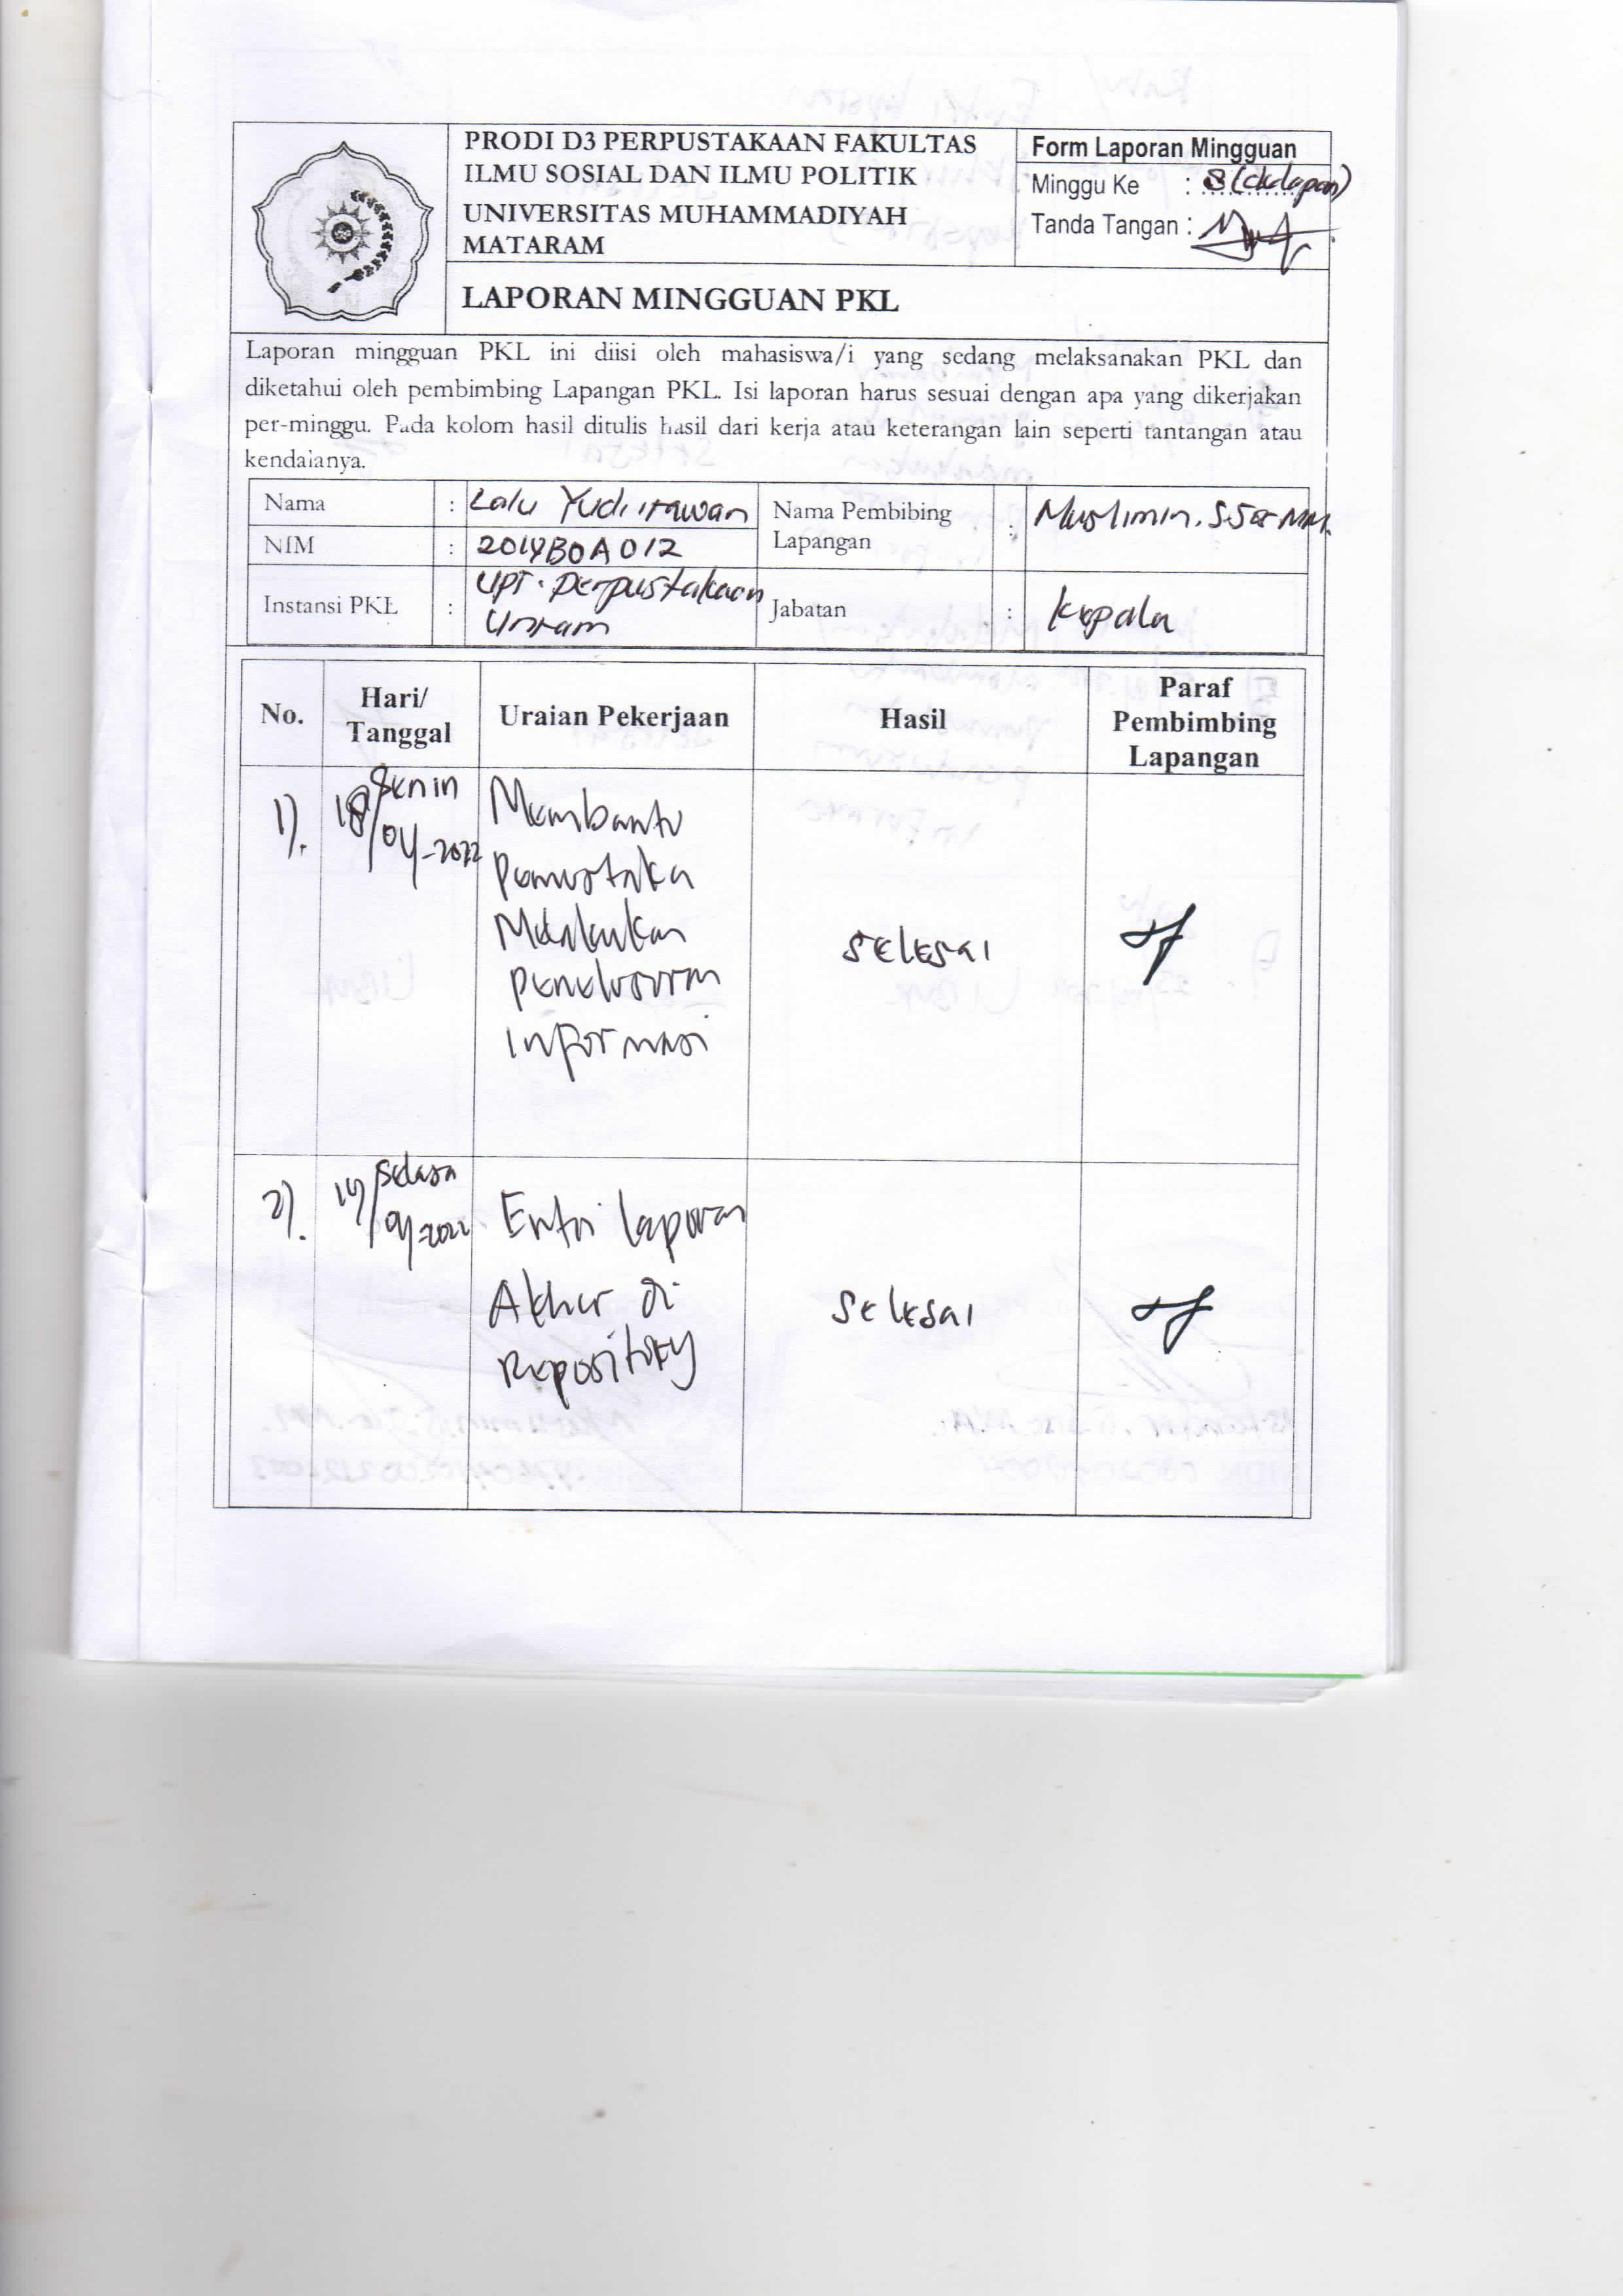 PRODI D3 PERPUSTAKAAN FAKULTAS
ILMU SOSIAL DAN ILMU POLITIK
UNIVERSITAS MUHAMMADIYAH
MATARAM
LAPORAN MINGGUAN PKL
Form Laporan Mingguan
Minggu Ke : 8 (delapan)
Tanda Tangan :
Laporan mingguan PKL ini diisi oleh mahasiswa/i yang sedang melaksanakan PKL dan
diketahui oleh pembimbing Lapangan PKL. Isi laporan harus sesuai dengan apa yang dikerjakan
per-minggu. Pada kolom hasil ditulis hasil dari kerja atau keterangan lain seperti tantangan atau
kendalanya.
Nama : Lalu Yudi irawan
NIM : 2019B0A012
Instansi PKL : UPT. Perpustakaan
Unram
Nama Pembibing
Lapangan : Muslimin. S.Sos MM.
Jabatan : Kepala
No.
Hari/
Tanggal
Uraian Pekerjaan
Hasil
Paraf
Pembimbing
Lapangan
1).
Senin
18/04-2022
Membantu
Pemustaka
Melakukan
Penelusuran
Informasi
Selesai
2).
Selasa
19/04-2022
Entri laporan
Akhir di
Repository
Selesai